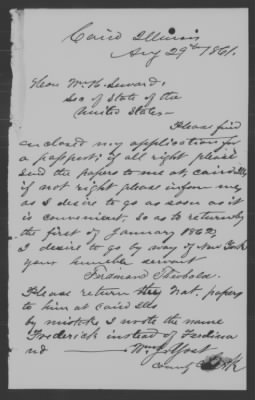 Cairo Illinois
Aug 29th 1861.
Hon Wm H. Seward,
Sec of State of the
United States—
Please find
enclosed my application for
a pasport, if all right please
send the papers to me at, cairo Ills
if not right please inform me,
as I desire to go as soon as it
is convenient, so as to return by
the first of January 1862,
I desire to go by way of New York
your humble servant
Ferdinand
Please return the Nat. papers
to him at Cairo Ills
by mistake I wrote the name
Frederick instead of Ferdina
nd — Wm J Yost
County Clerk